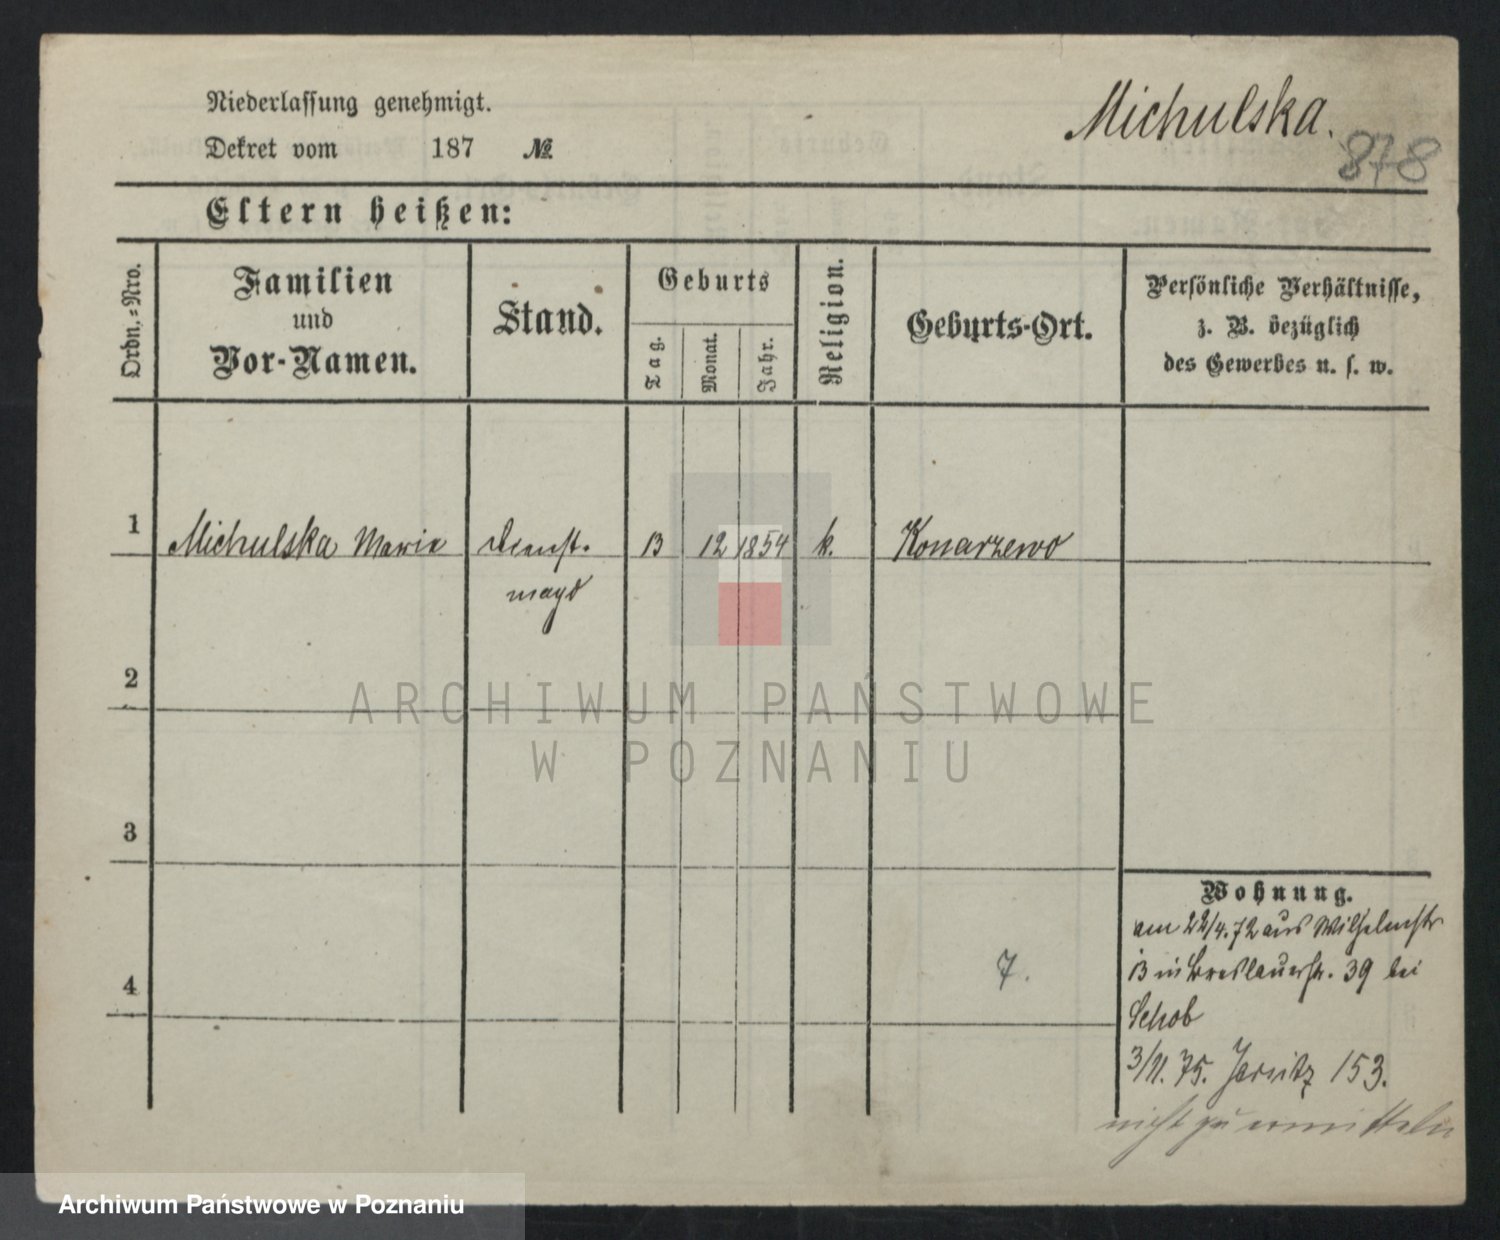 Niederlassung genehmigt.
Dekret vom 187 №
Michulska.
878
Eltern heißen:
Ordn.-Nro.
Familien
und
Vor-Namen.
Stand.
Geburts
Tag.
Monat.
Jahr.
Religion.
Geburts-Ort.
Persönliche Verhältnisse,
z. B. bezüglich
des Gewerbes u. s. w.
1 Michulska Maria Dienst- 13 12 1854 k. Konarzewo
magd
2
ARCHIWUM PAŃSTWOWE
W POZNANIU
3
Wohnung.
am 22/4. 72 aus Wilhelmstr
13 in Breslauerstr. 39 bei
Schob
4
7.
3/11. 75. Jersitz 153.
nicht zu ermitteln
Archiwum Państwowe w Poznaniu